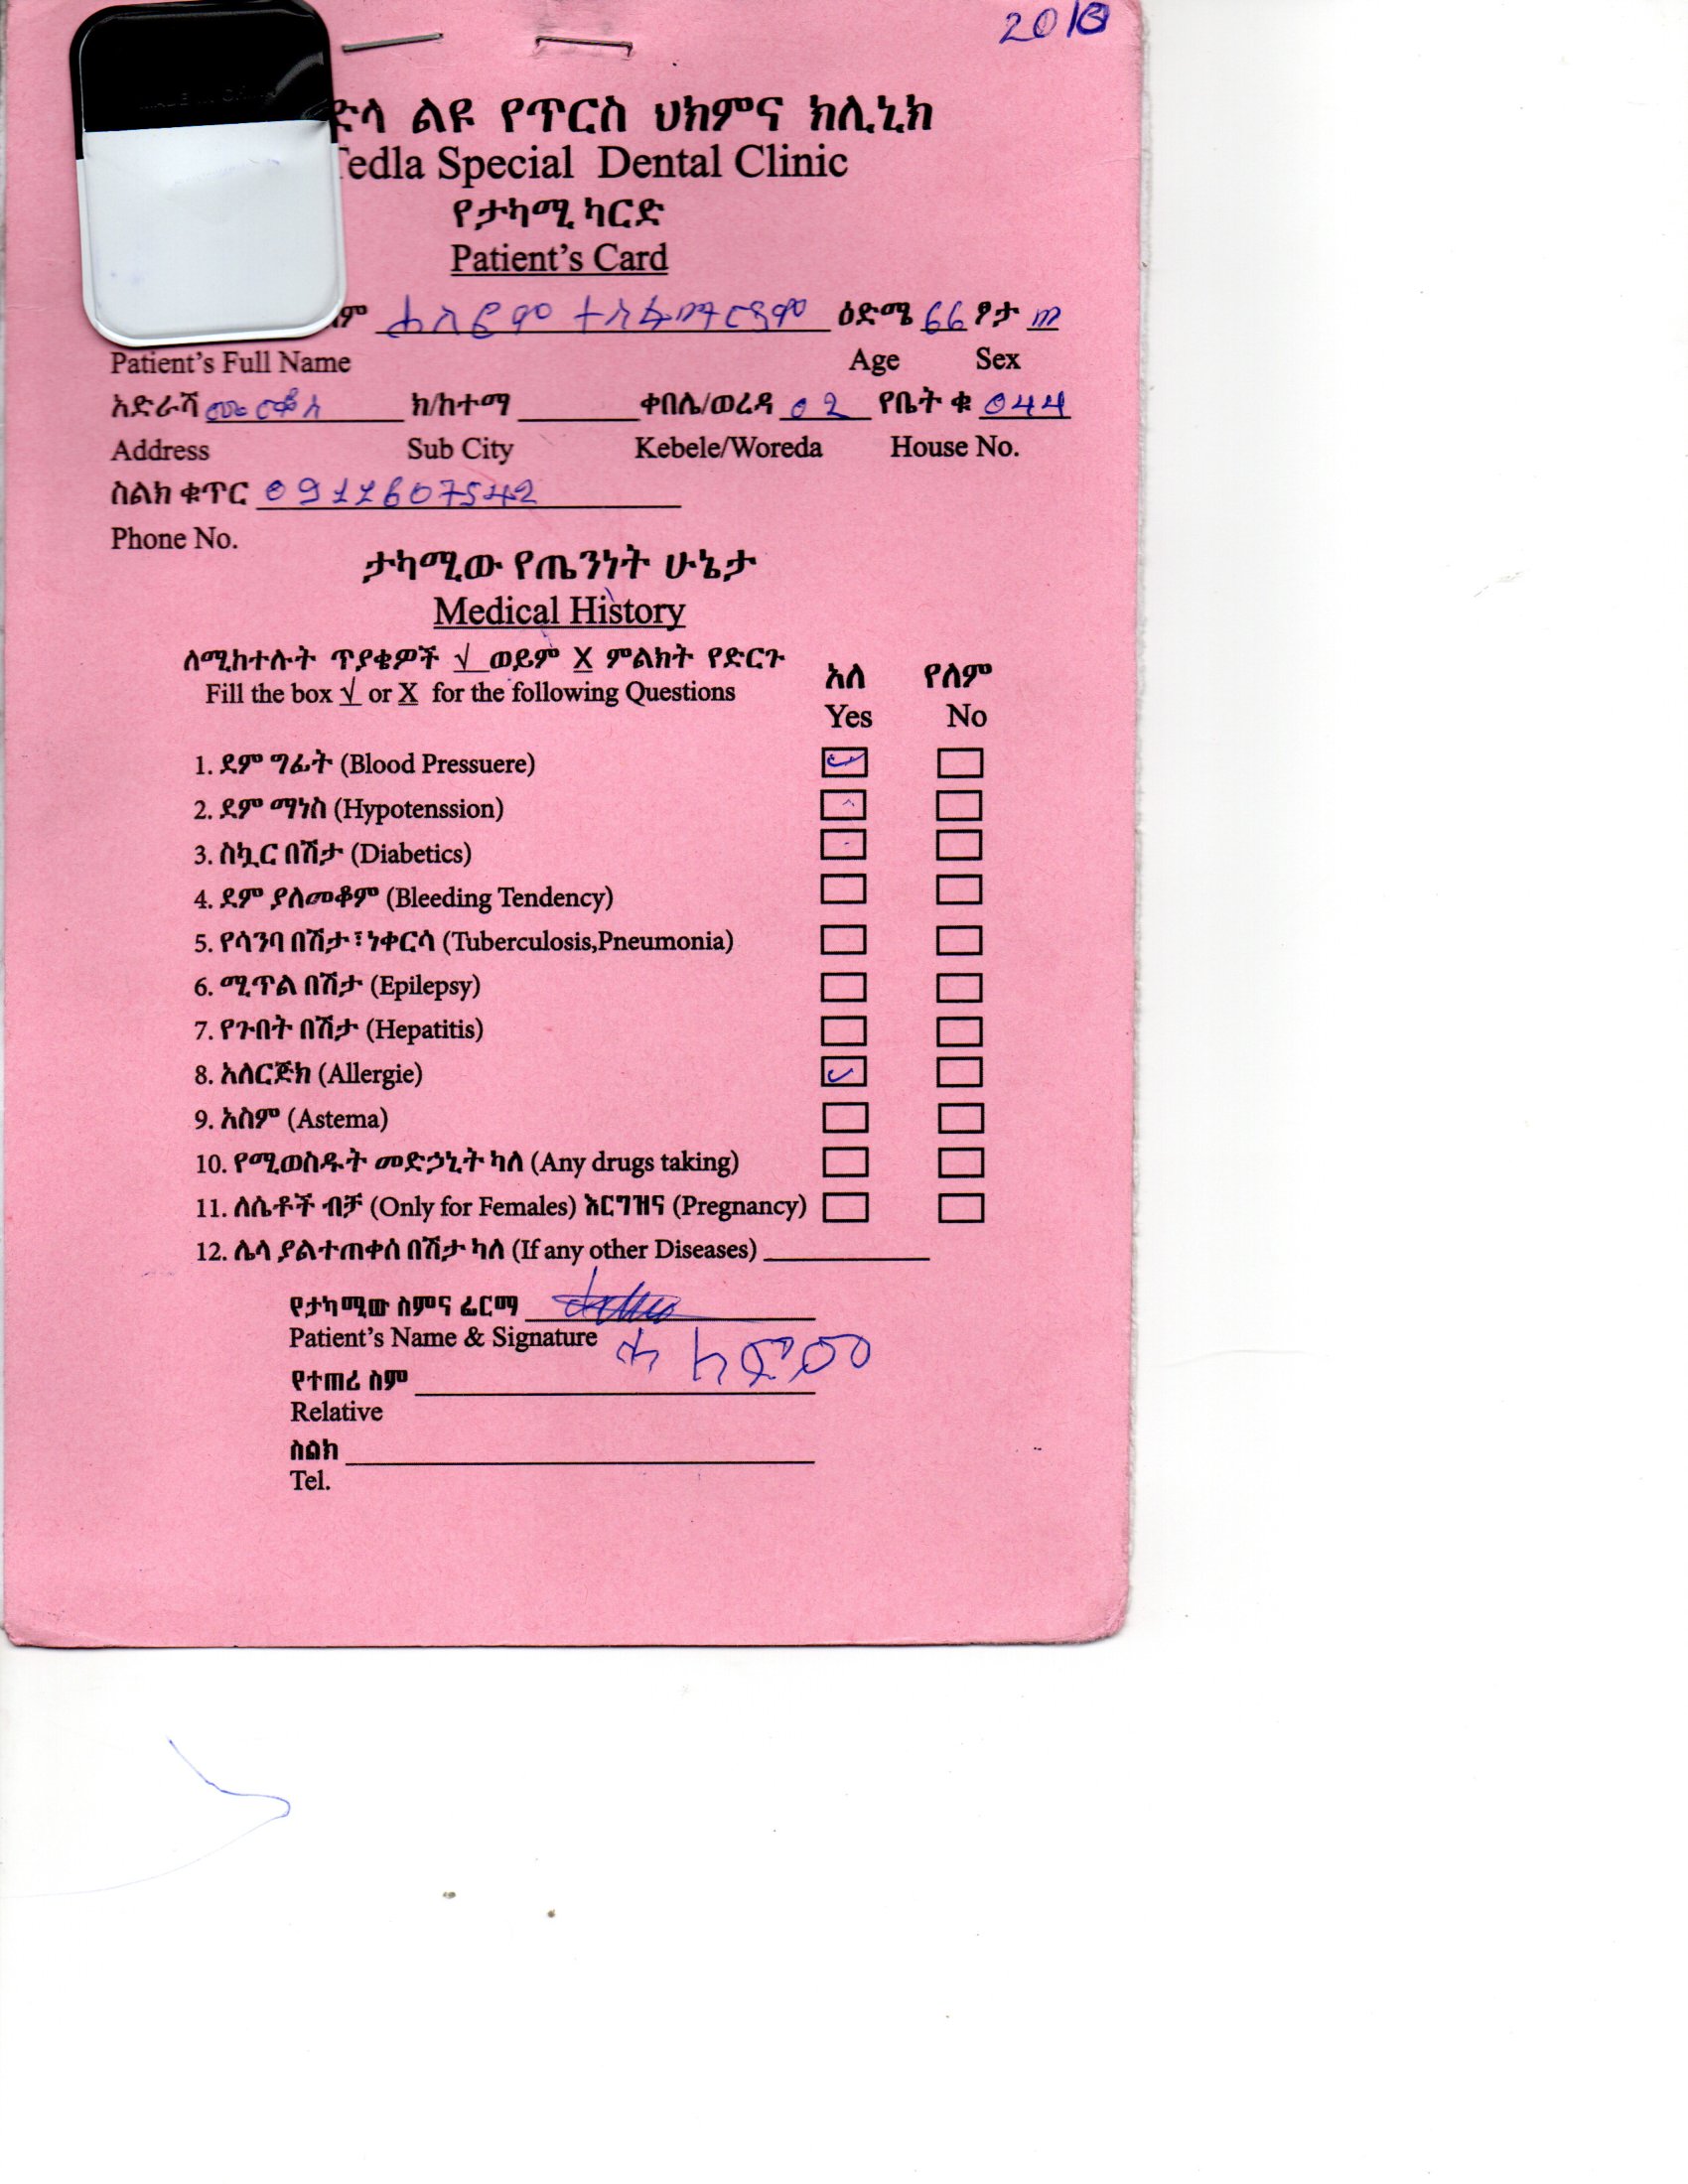 2018
ድላ ልዩ የጥርስ ህክምና ክሊኒክ
Tedla Special Dental Clinic
የታካሚ ካርድ
Patient's Card
ም ዕድሜ 66 ፆታ m
Patient's Full Name Age Sex
አድራሻ ክ/ከተማ ቀበሌ/ወረዳ 02 የቤት ቁ 044
Address Sub City Kebele/Woreda House No.
ስልክ ቁጥር 0911607542
Phone No.
ታካሚው የጤንነት ሁኔታ
Medical History
ለሚከተሉት ጥያቄዎች √ ወይም X ምልክት የድርጉ አለ የለም
Fill the box √ or X for the following Questions Yes No
1. ደም ግፊት (Blood Pressuere) ✓
2. ደም ማነስ (Hypotenssion)
3. ስኳር በሽታ (Diabetics)
4. ደም ያለመቆም (Bleeding Tendency)
5. የሳንባ በሽታ፣ነቀርሳ (Tuberculosis,Pneumonia)
6. ሚጥል በሽታ (Epilepsy)
7. የጉበት በሽታ (Hepatitis)
8. አለርጅክ (Allergie) ✓
9. አስም (Astema)
10. የሚወስዱት መድኃኒት ካለ (Any drugs taking)
11. ለሴቶች ብቻ (Only for Females) እርግዝና (Pregnancy)
12. ሌላ ያልተጠቀሰ በሽታ ካለ (If any other Diseases)
የታካሚው ስምና ፊርማ
Patient's Name & Signature
የተጠሪ ስም
Relative
ስልክ
Tel.